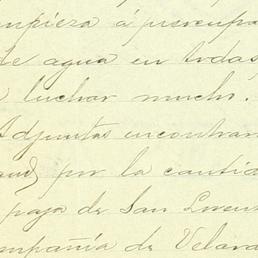 mpieza á preocupa
de agua en todas
a luchar mucho.
Adjuntas encontrar
por la cantida
paja de San Lorenz
ompañía de Velar